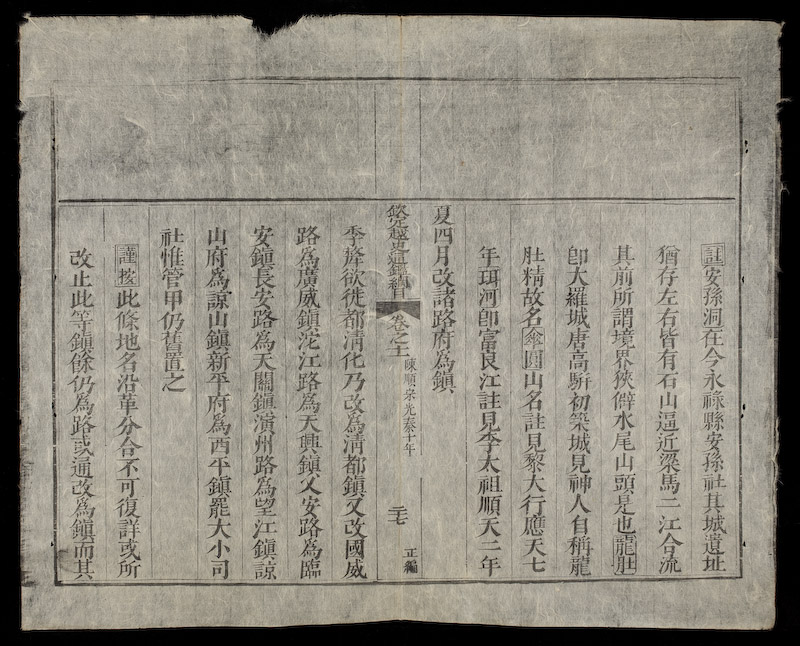 註安孫洞在今永祿縣安孫社其城遺址
猶存左右皆有石山逼近梁馬二江合流
其前所謂境界狹僻水尾山頭是也龍肚
卽大羅城唐高駢初築城見神人自稱龍
肚精故名傘圓山名註見黎大行應天七
年珥河卽富良江註見李太祖順天二年
夏四月改諸路府爲鎮
欽定越史通鑑綱目 卷之十一 陳順宗光泰十年 二十七 正編
季犛欲徙都淸化乃改爲淸都鎮又改國威
路爲廣威鎮沱江路爲天興鎮乂安路爲臨
安鎮長安路爲天關鎮演州路爲望江鎮諒
山府爲諒山鎮新平府爲西平鎮罷大小司
社惟管甲仍舊置之
謹按此條地名沿革分合不可復詳或所
改止此等鎮餘仍爲路或通改爲鎮而其